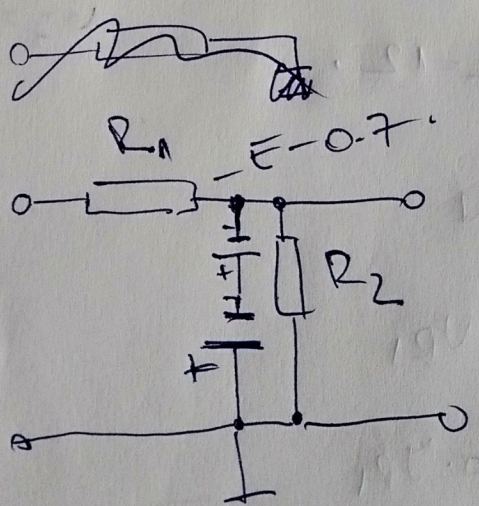 R1
-E-0.7
R2
- +
- +